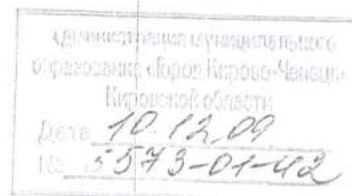 Администрация муниципального
образования «Город Кирово-Чепецк»
Кировской области
Дата 10.12.09
№ 5573-01-42